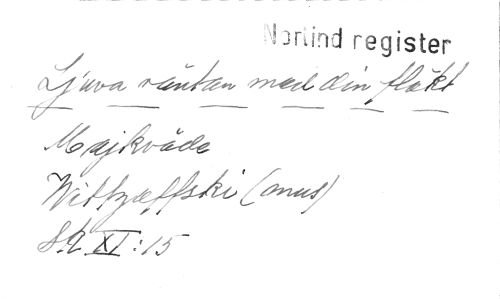 Norlind register
Ljuva väntan med din fläkt
Majkväde
Wittzæffski (mus)
SA XI:15